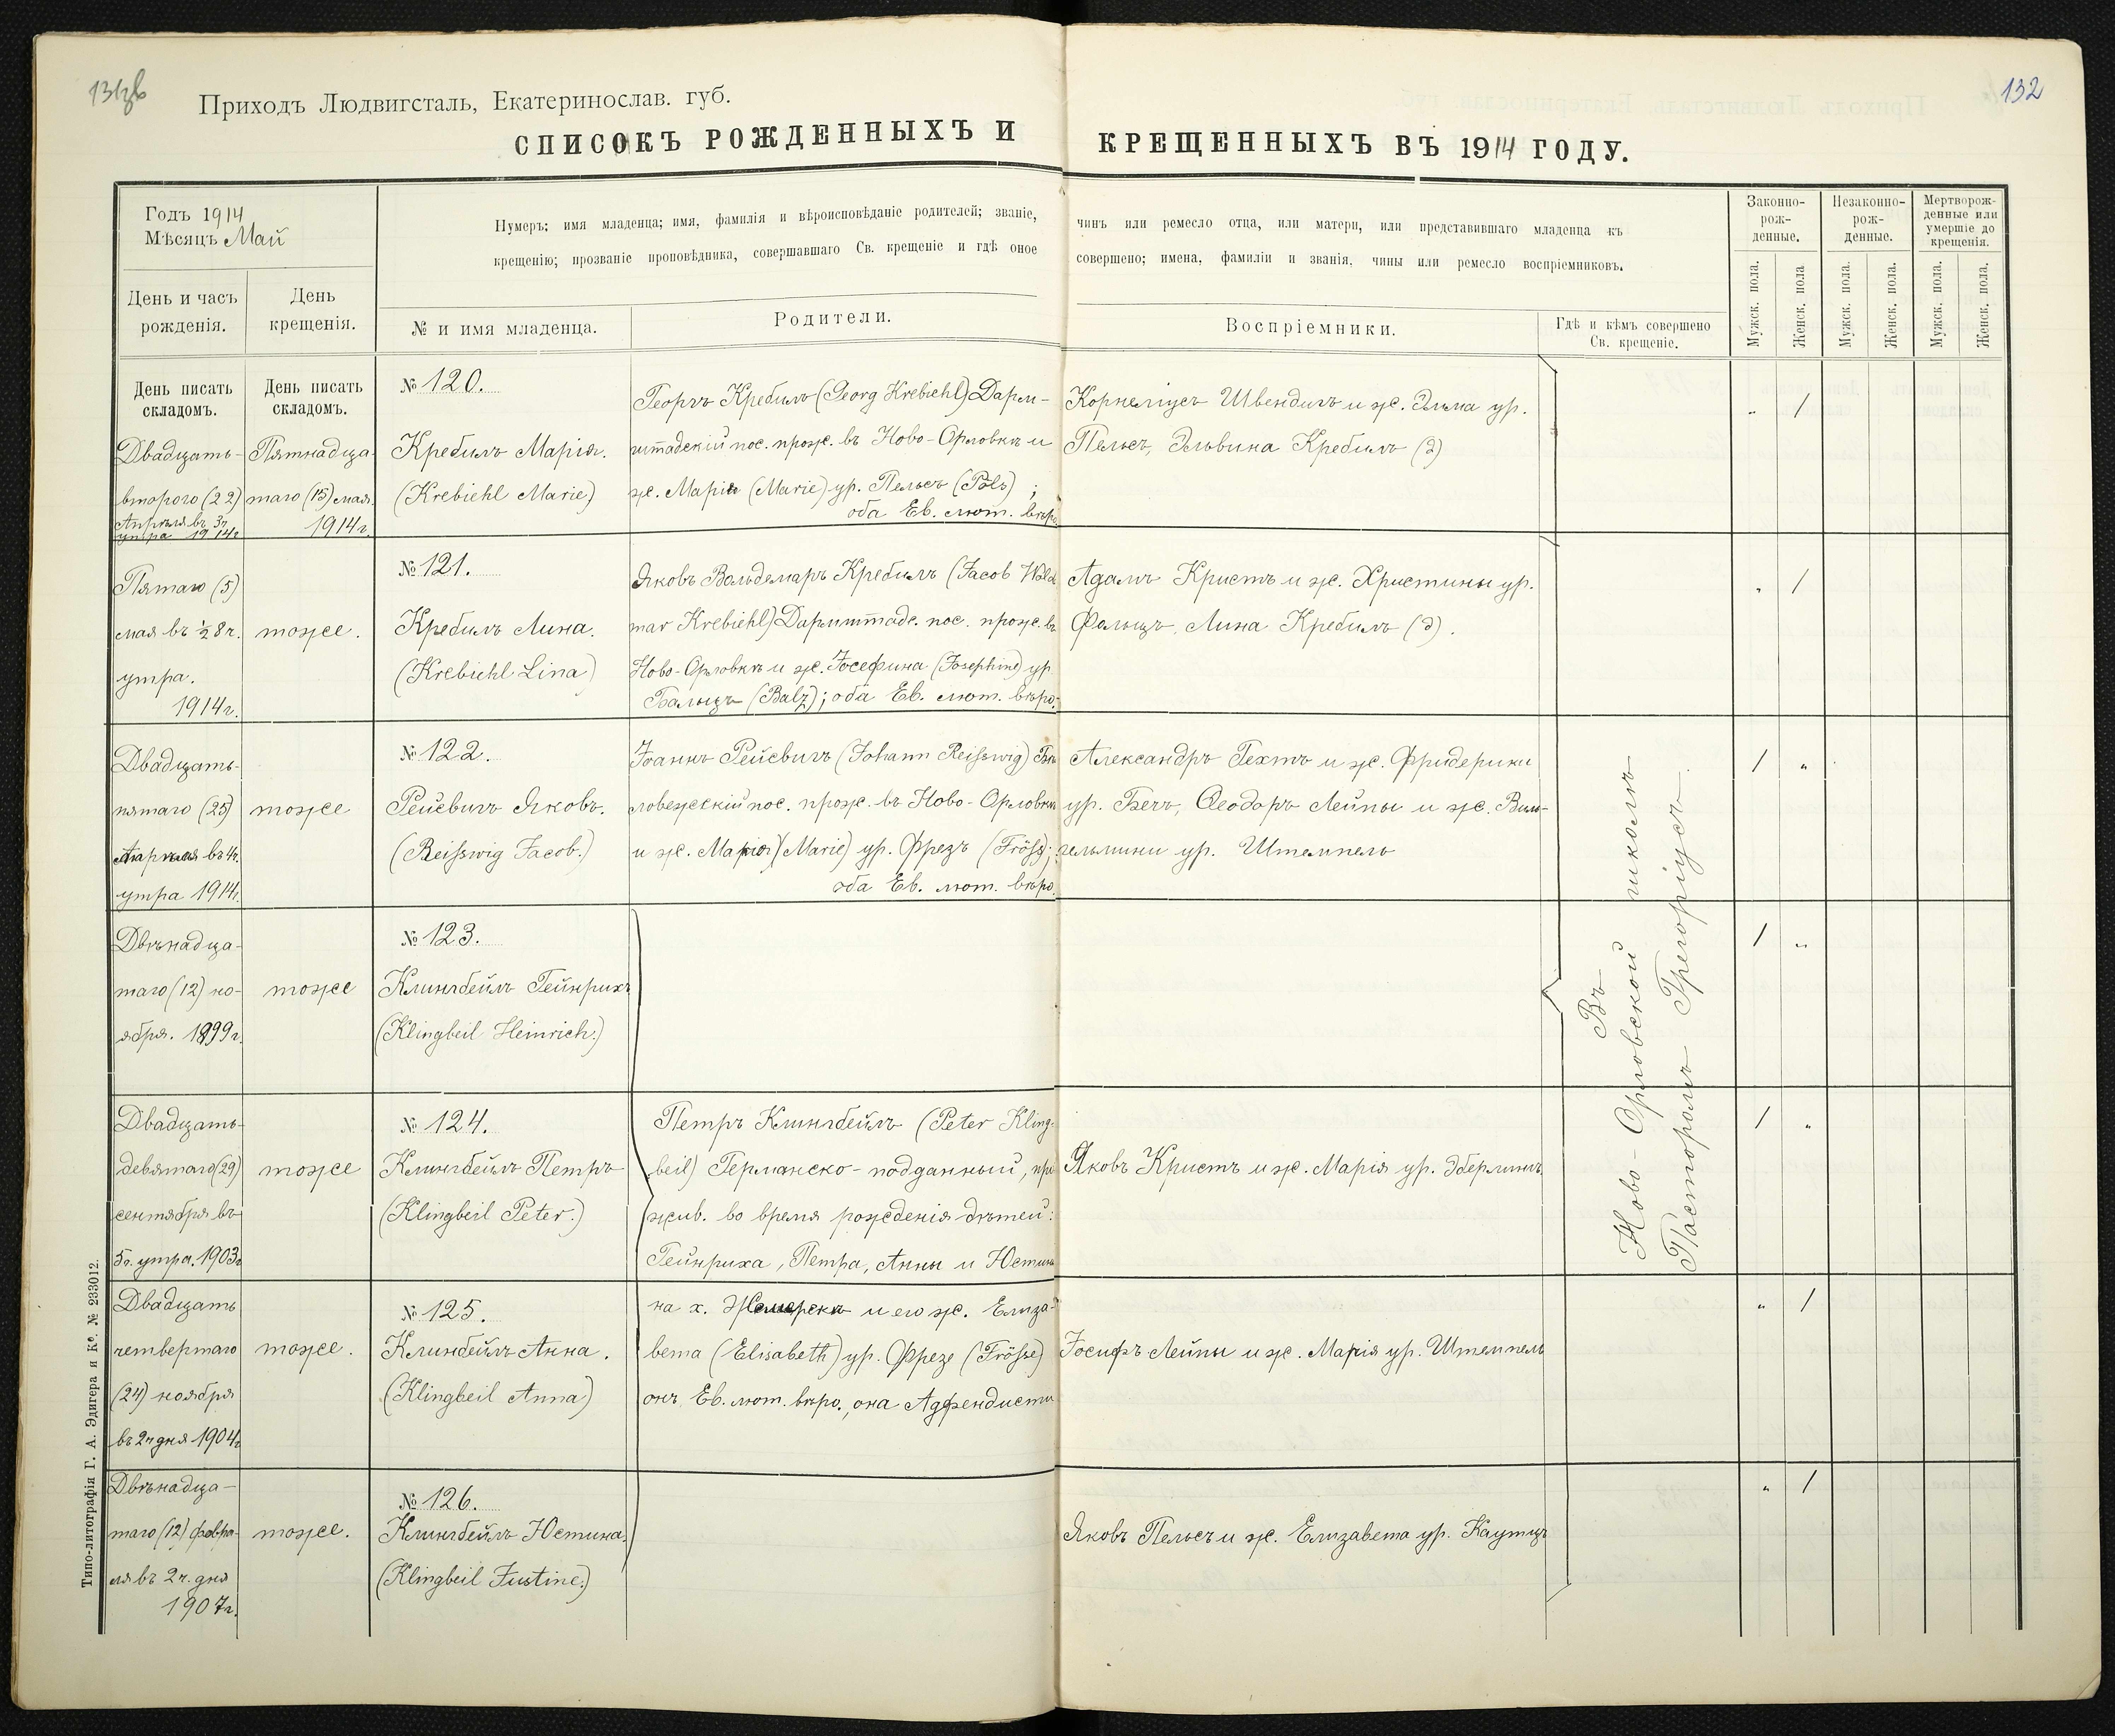 131об
132
Приходъ Людвигсталь, Екатеринослав. губ.
СПИСОКЪ РОЖДЕННЫХЪ И КРЕЩЕННЫХЪ ВЪ 1914 ГОДУ.
Годъ 1914
Мѣсяцъ Май
Нумеръ; имя младенца; имя, фамилія и вѣроисповѣданіе родителей; званіе, чинъ или ремесло отца, или матери, или представившаго младенца къ
крещенію; прозваніе проповѣдника, совершавшаго Св. крещеніе и гдѣ оное совершено; имена, фамиліи и званія, чины или ремесло воспріемниковъ.
Законно-
рож-
денные.
Незаконно-
рож-
денные.
Мертворож-
денные или
умершіе до
крещенія.
День и часъ
рожденія.
День
крещенія.
№ и имя младенца.
Родители.
Воспріемники.
Гдѣ и кѣмъ совершено
Св. крещеніе.
Мужск. пола.
Женск. пола
Мужск. пола.
Женск. пола.
Мужск. пола.
Женск. пола.
День писать
складомъ.
День писать
складомъ.
Двадцать-
второго (22)
Апрѣля въ 3ч.
утра 1914г.
Пятнадца-
таго (15) мая
1914г.
№ 120.
Кребиль Марія.
(Krebiehl Marie)
Георгъ Кребиль (Georg Krebiehl) Дарм-
штадскій пос. прож. въ Ново-Орловкѣ и
ж. Марія (Marie) ур. Пельсъ (Pöls);
оба Ев. лют. вѣро.
Корнеліусъ Швендихъ и ж. Эльма ур.
Пельсъ, Эльвина Кребиль (д)
„ /
Пятаго (5)
мая въ ½8ч.
утра.
1914г.
тоже.
№ 121.
Кребиль Лина.
(Krebiehl Lina)
Яковъ Вольдемаръ Кребиль (Jacob Wolde
mar Krebiehl) Дармштадс. пос. прож. въ
Ново-Орловкѣ и ж. Іосефина (Josephine) ур.
Бальцъ (Balz); оба Ев. лют. вѣро.
Адамъ Кристъ и ж. Христины ур.
Фольцъ, Лина Кребиль (д).
„ /
Двадцать-
пятаго (25)
Апрѣля въ 4ч.
утра 1914г.
тоже
№ 122.
Рейсвигъ Яковъ.
(Reisswig Jacob.)
Іоаннъ Рейсвигъ (Johann Reisswig) Бѣ
ловежскій пос. прож. въ Ново-Орловкѣ
и ж. Марія (Marie) ур. Фрезъ (Fröss);
оба Ев. лют. вѣро.
Александръ Гехтъ и ж. Фридерики
ур. Бечъ, Ѳеодоръ Лейпы и ж. Виль-
гельмини ур. Штемпель
/ „
Двѣнадца-
таго (12) но-
ября. 1899г.
тоже
№ 123.
Клингбейль Гейнрихъ
(Klingbeil Heinrich.)
/ „
Двадцать-
девятаго (29)
сентября въ
5ч. утра. 1903г
тоже
№ 124.
Клингбейль Петръ
(Klingbeil Peter.)
Петръ Клингбейль (Peter Kling-
beil) Германско-подданный, про
жив. во время рожденія дѣтей:
Гейнриха, Петра, Анны и Юстины
Яковъ Кристъ и ж. Марія ур. Эберлингъ
/ „
Двадцать
четвертаго
(24) ноября
въ 2ч дня 1904г
тоже.
№ 125.
Клингбейль Анна.
(Klingbeil Anna)
на х. и его ж. Елиза-
вета (Elisabeth) ур. Фрезе (Frösse)
онъ Ев. лют. вѣро., она
Іосифъ Лейпы и ж. Марія ур. Штемпель
„ /
Двѣнадца-
таго (12) февра-
ля въ 2ч. дня
1907г.
тоже.
№ 126.
Клингбейль Юстина.
(Klingbeil Justine.)
Яковъ Пельсъ и ж. Елизавета ур. Каутцъ
„ /
Въ
Ново-Орловской школѣ
Пасторомъ Грегоріусъ.
Типо-литографія Г. А. Эдигера и Ко. № 233012.